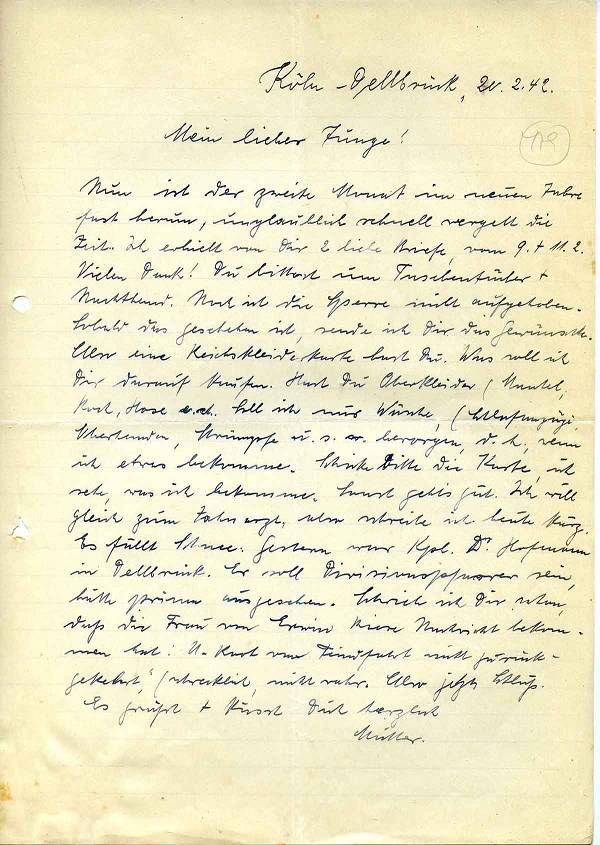 Köln-Dellbrück, 20.2.42.
119
Mein lieber Junge!
Nun ist der zweite Monat im neuen Jahre
fast herum, unglaublich schnell vergeht die
Zeit. Ich erhielt von Dir 2 liebe Briefe, vom 9. + 11.2.
Vielen Dank! Du bittest um Taschentücher +
Noch ist die Sperre nicht aufgehoben.
Sobald das geschehen ist, sende ich Dir das Gewünschte.
Also eine Reichskleiderkarte hast Du. Was soll ich
Dir darauf kaufen. Hast Du Oberkleider (Mantel,
Rock, Hose Soll ich nur Wäsche, (Schlafanzüge,
Oberhemden, Strümpfe u.s.w. besorgen, d.h., wenn
ich etwas bekomme. Schicke bitte die Karte, ich
sehe, was ich bekomme. Sonst gehts gut. Ich will
gleich zum Zahnarzt, also schreibe ich heute kurz.
Es fällt Schnee. Gestern war Kpl. Dr. Hofmann
in Dellbrück. Er soll Divisionspfarrer sein,
hätte prima ausgesehen. Schrieb ich Dir schon,
daß die Frau von Erwin diese Nachricht bekom-
men hat: U-Boot von Feindfahrt nicht zurück-
gekehrt," schrecklich, nicht wahr. Also jetzt Schluß.
Es grüßt + küsst Dich herzlich
Mutter.